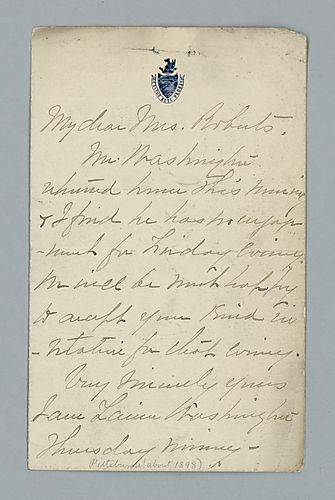 My dear Mrs. Roberts.
Mr. Washington
returned home this morning
& I find he has no engage
-ment for Friday evening.
We will be most happy
to accept your kind in
-vitation for that evening.
Very Sincerely yours
Washington
Thursday
Pittsburg (about 1898)